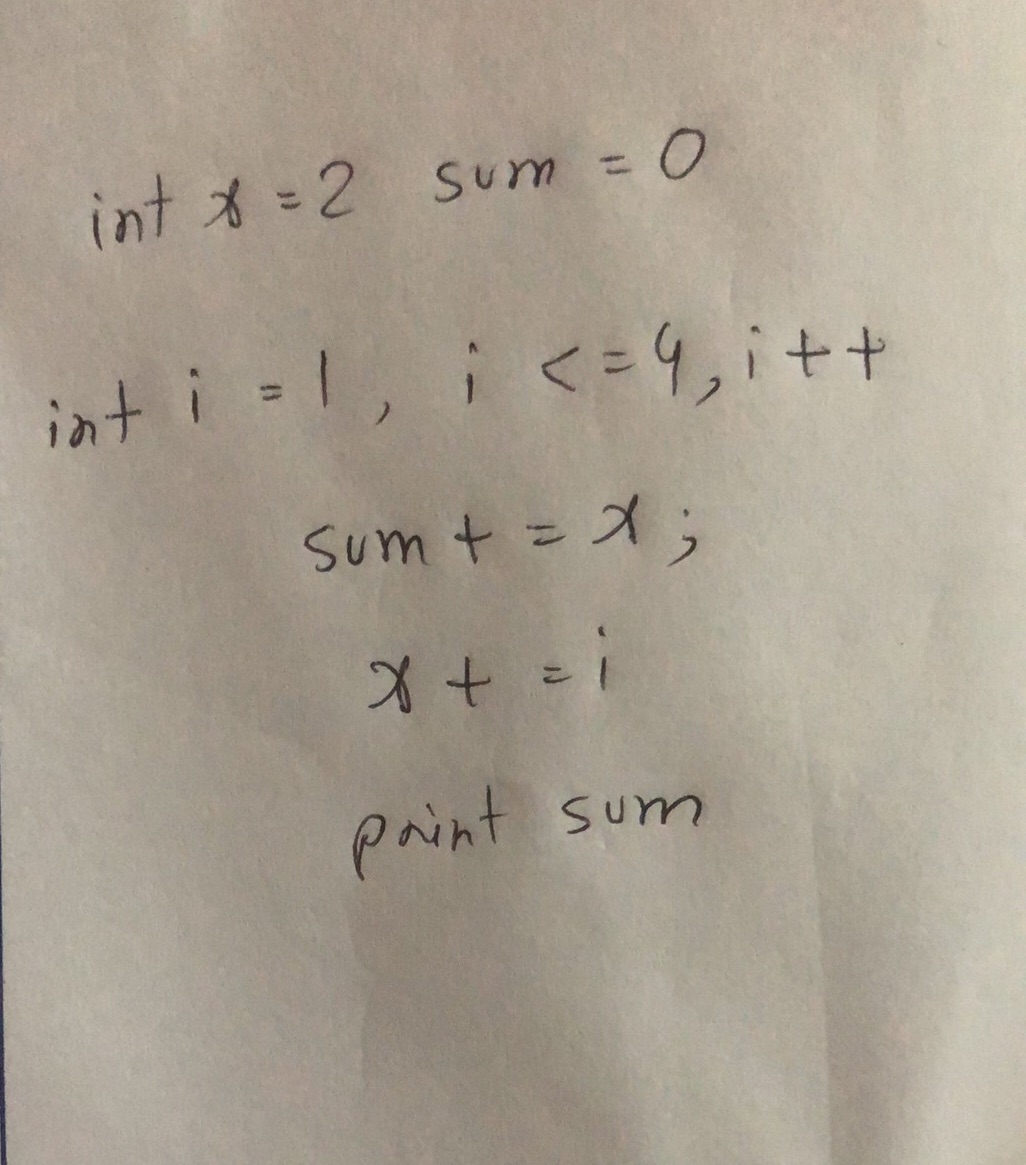 int x = 2 sum = 0
int i = 1, i <= 4, i++
sum + = x ;
x + = i
print sum